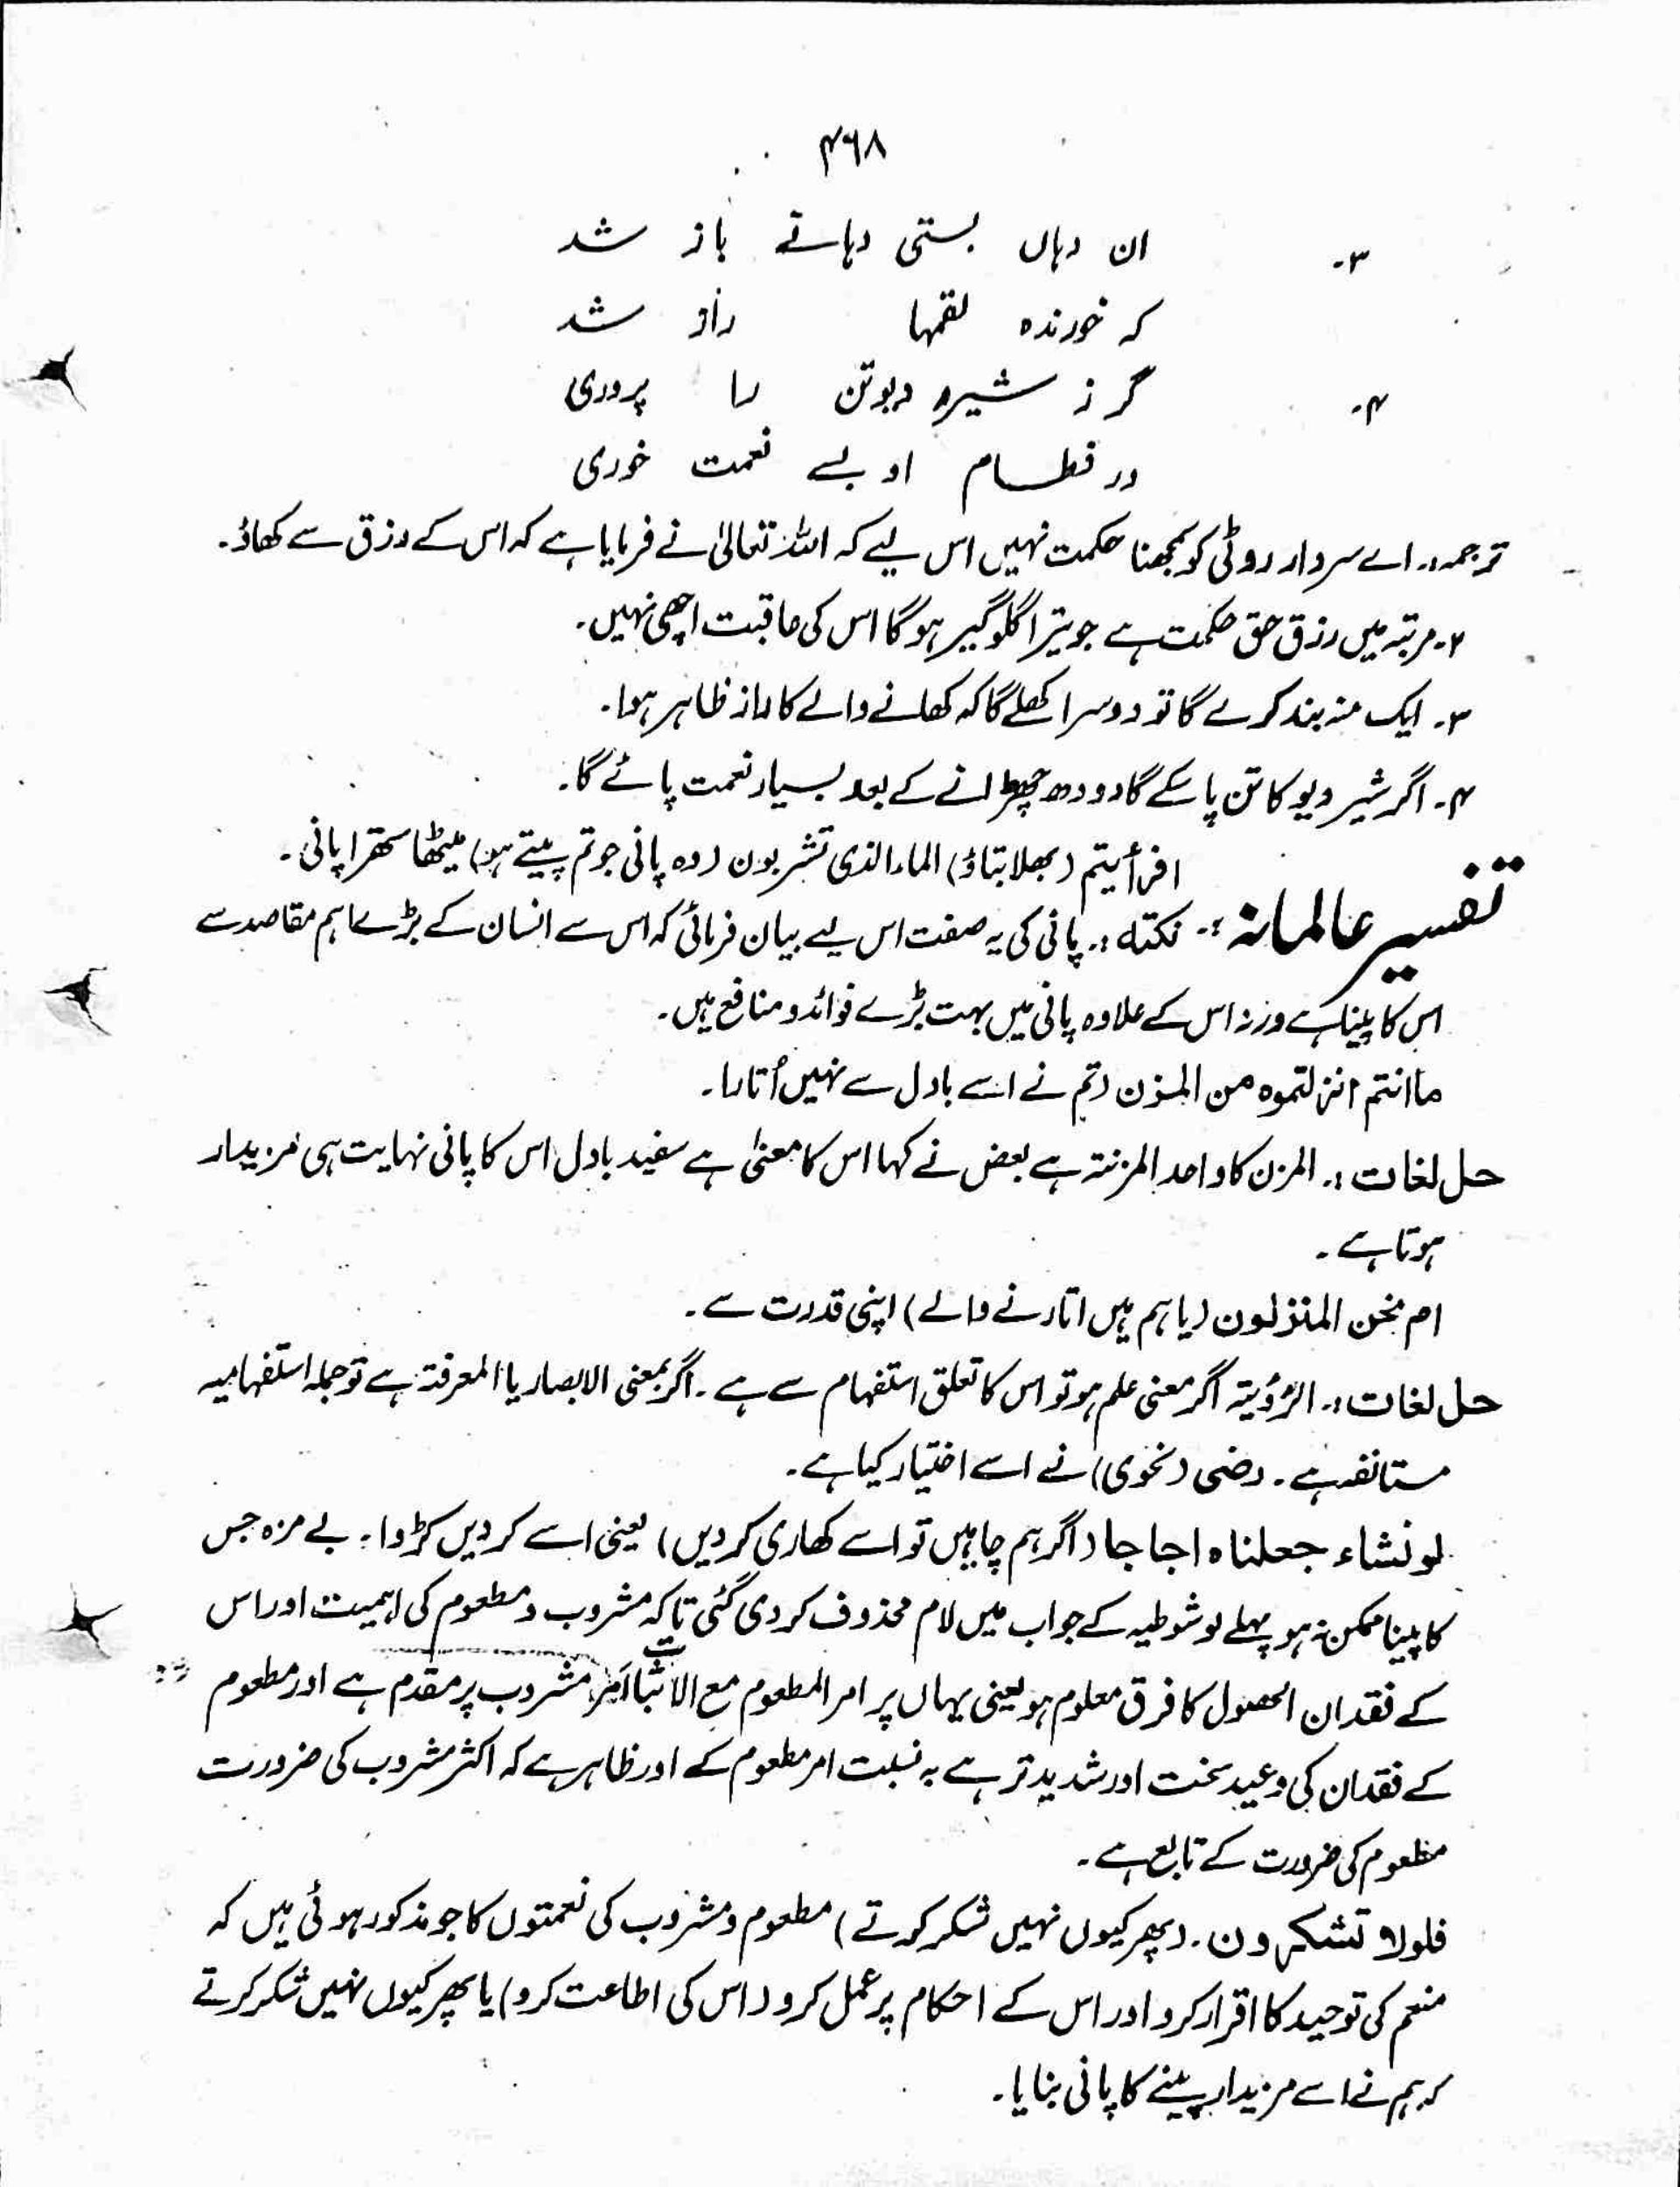 ۴۶۸
۳۔ ان دہاں بستی دہانے باز شد
کہ خورندہ لقمہا راز شد
۴۔ گر ز شیر دیوتن را پروری
در فطام او بے نعمت خوری
ترجمہ:۔ اے سردار روٹی کو سمجھنا حکمت نہیں اس لیے کہ اللہ تعالیٰ نے فرمایا ہے کہ اس کے رزق سے کھاؤ۔
۲۔ مرتبہ میں رزق حق حکمت ہے جو تیرا گلوگیر ہو گا اس کی عاقبت اچھی نہیں۔
۳۔ ایک منہ بند کرے گا تو دوسرا کھلے گا کہ کھانے والے کا راز ظاہر ہوا۔
۴۔ اگر شیر دیو کا تن پا سکے گا دودھ چھڑانے کے بعد بسیار نعمت پائے گا۔
افرأیتم (بھلا بتاؤ) الماء الذی تشربون (وہ پانی جو تم پیتے ہو) میٹھا ستھرا پانی۔
تفسیر عالمانہ :۔ نکتہ :۔ پانی کی یہ صفت اس لیے بیان فرمائی کہ اس سے انسان کے بڑے اہم مقاصد سے
اس کا پینا ہے ورنہ اس کے علاوہ پانی میں بہت بڑے فوائد و منافع ہیں۔
ما انتم انزلتموہ من المزن (تم نے اسے بادل سے نہیں اُتارا۔
حل لغات :۔ المزن کا واحد المزنتہ ہے بعض نے کہا اس کا معنیٰ ہے سفید بادل اس کا پانی نہایت ہی مزیدار
ہوتا ہے۔
ام نحن المنزلون (یا ہم ہیں اتارنے والے) اپنی قدرت سے۔
حل لغات :۔ الرؤیتہ اگر معنی علم ہو تو اس کا تعلق استفہام سے ہے۔ اگر بمعنی الابصار یا المعرفتہ ہے تو جملہ استفہامیہ
مستانفہ ہے۔ رضی (نحوی) نے اسے اختیار کیا ہے۔
لو نشاء جعلناہ اجاجا (اگر ہم چاہیں تو اسے کھاری کر دیں) یعنی اسے کر دیں کڑوا۔ بے مزہ جس
کا پینا ممکن نہ ہو پہلے لو شوطیہ کے جواب میں لام محذوف کر دی گئی تاکہ مشروب و مطعوم کی اہمیت اور اس
کے فقدان الحصول کا فرق معلوم ہو یعنی یہاں پر امر المطعوم مع الاثبات امر مشروب پر مقدم ہے اور مطعوم
کے فقدان کی وعید سخت اور شدید تر ہے بہ نسبت امر مطعوم کے اور ظاہر ہے کہ اکثر مشروب کی ضرورت
مطعوم کی ضرورت کے تابع ہے۔
فلولا تشکرون۔ (پھر کیوں نہیں شکر کرتے) مطعوم و مشروب کی نعمتوں کا جو مذکور ہوئی ہیں کہ
منعم کی توحید کا اقرار کرو اور اس کے احکام پر عمل کرو (اس کی اطاعت کرو) یا پھر کیوں نہیں شکر کرتے
کہ ہم نے اسے مزیدار پینے کا پانی بنایا۔